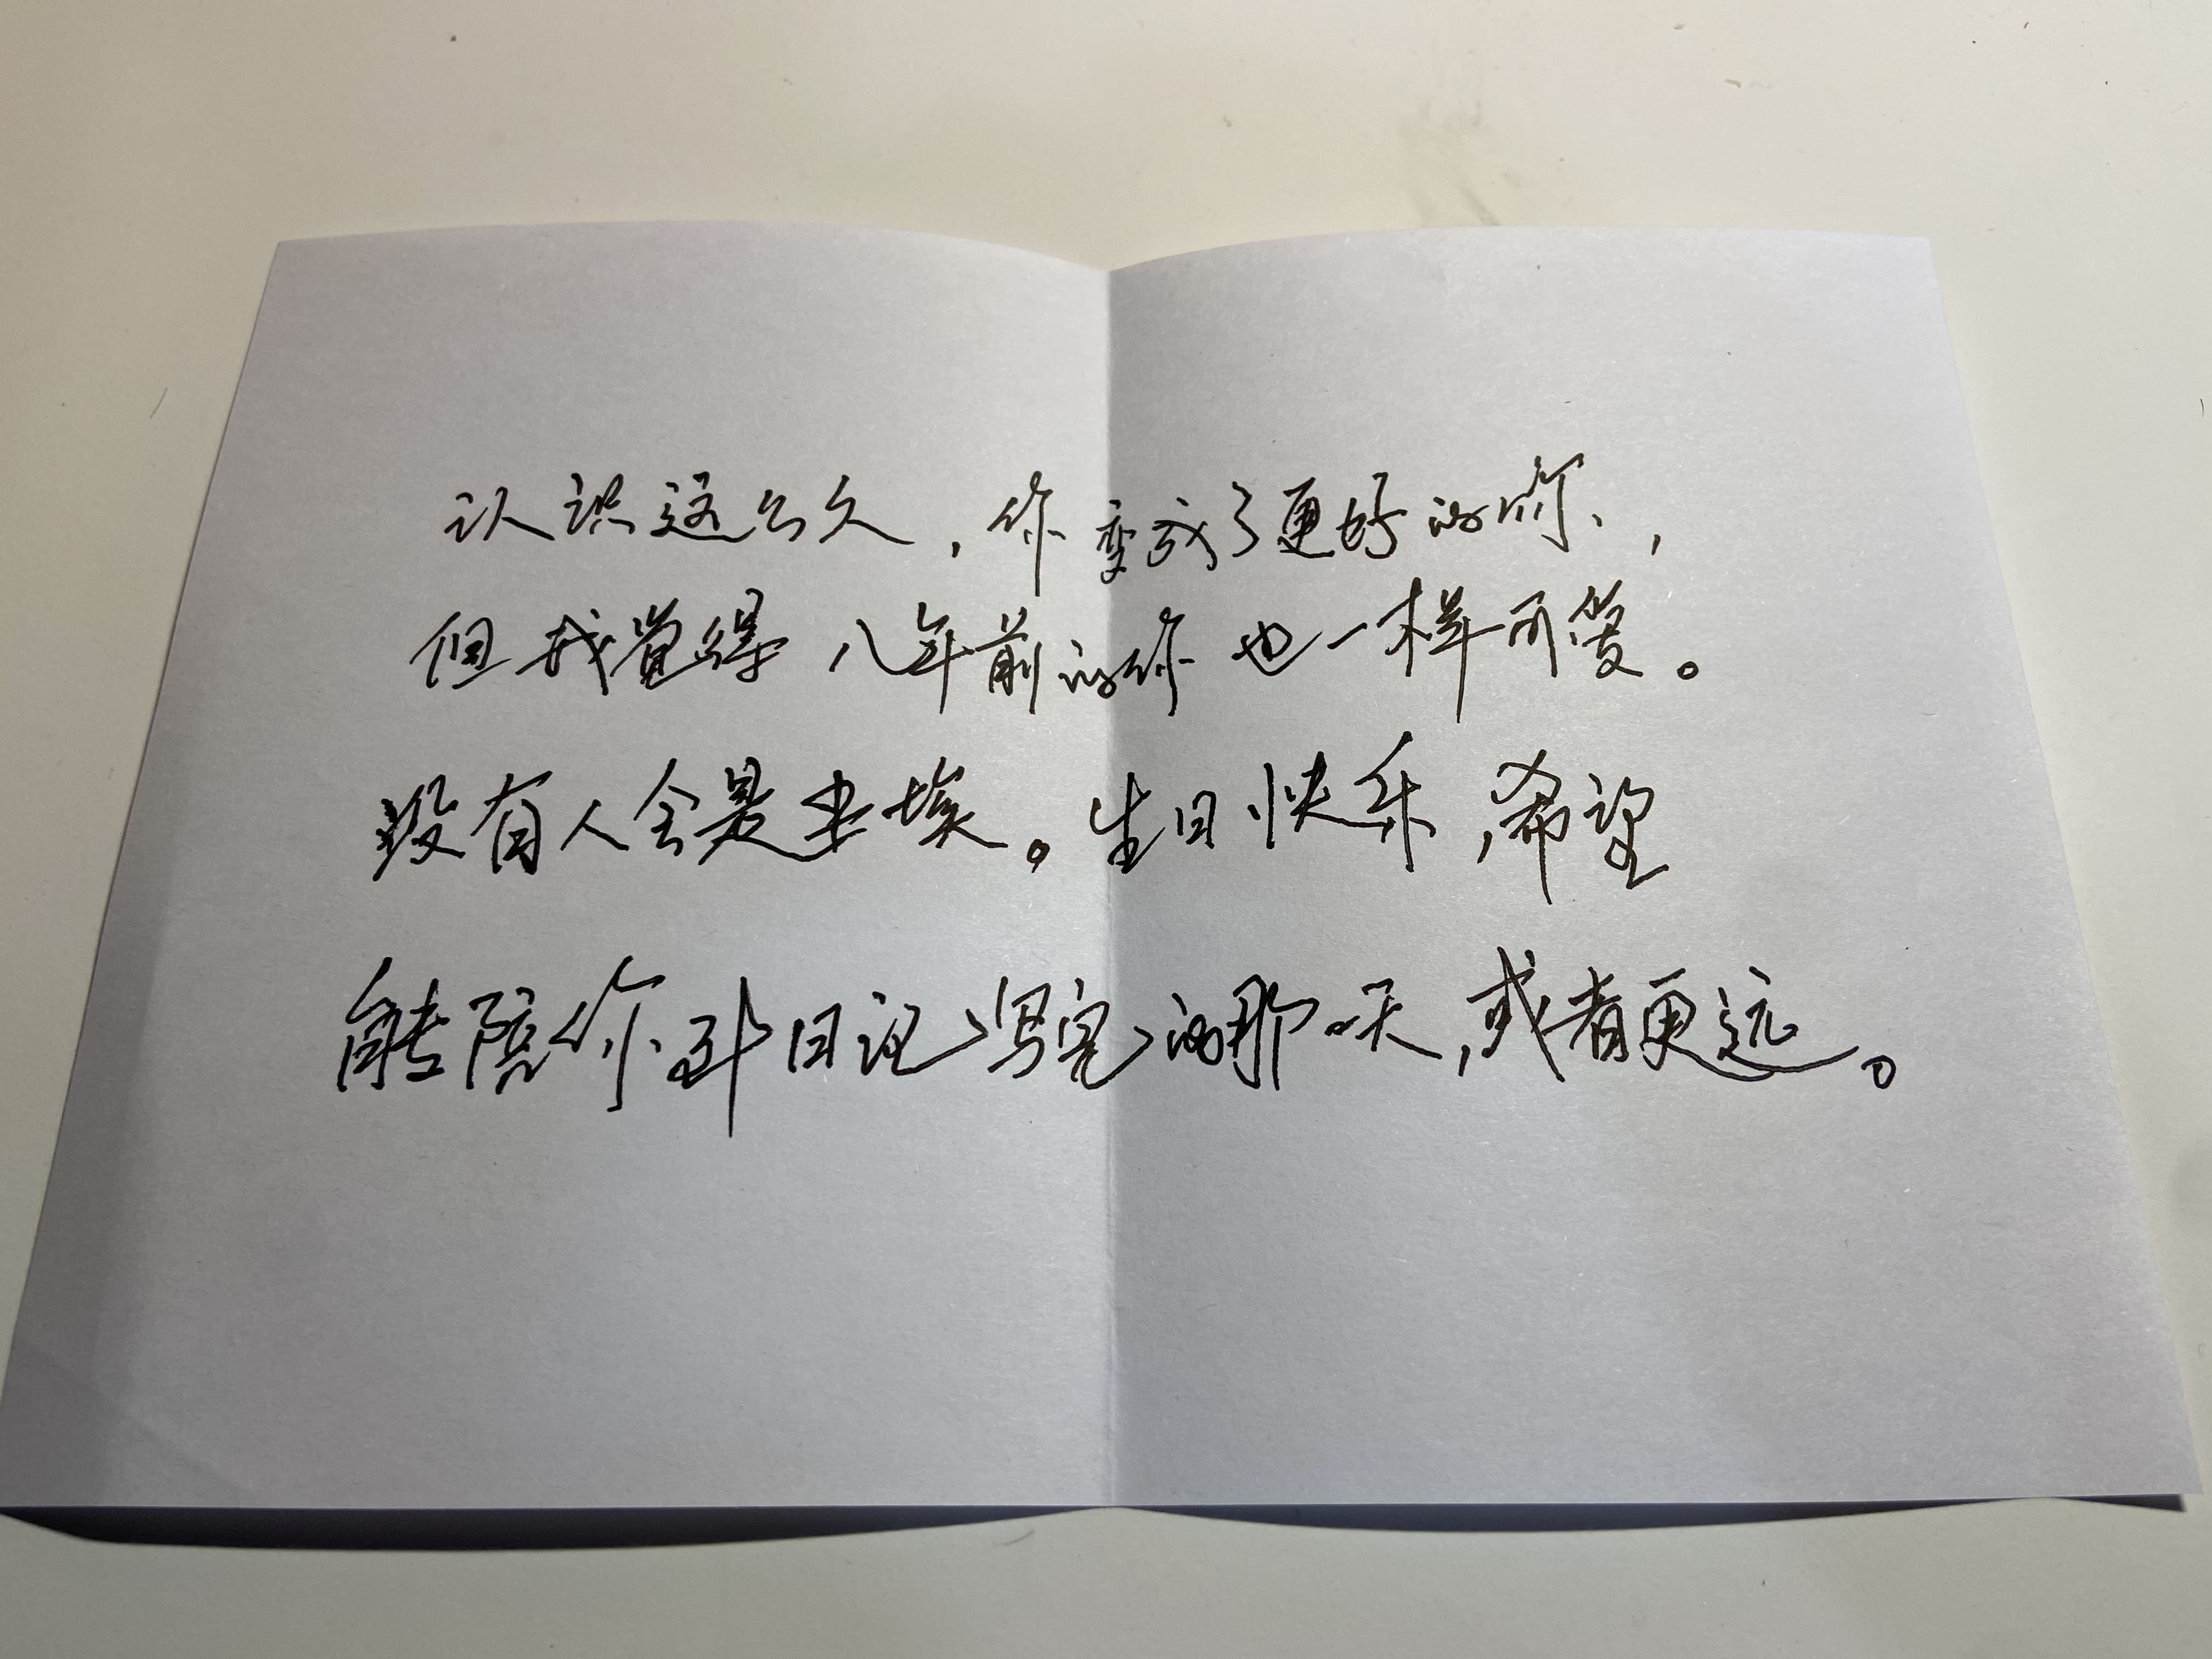 认识这么久，你变成了更好的你，
但我觉得八年前的你也一样可爱。
没有人会是尘埃。生日快乐，希望
能陪你到日记写完的那一天，或者更远。